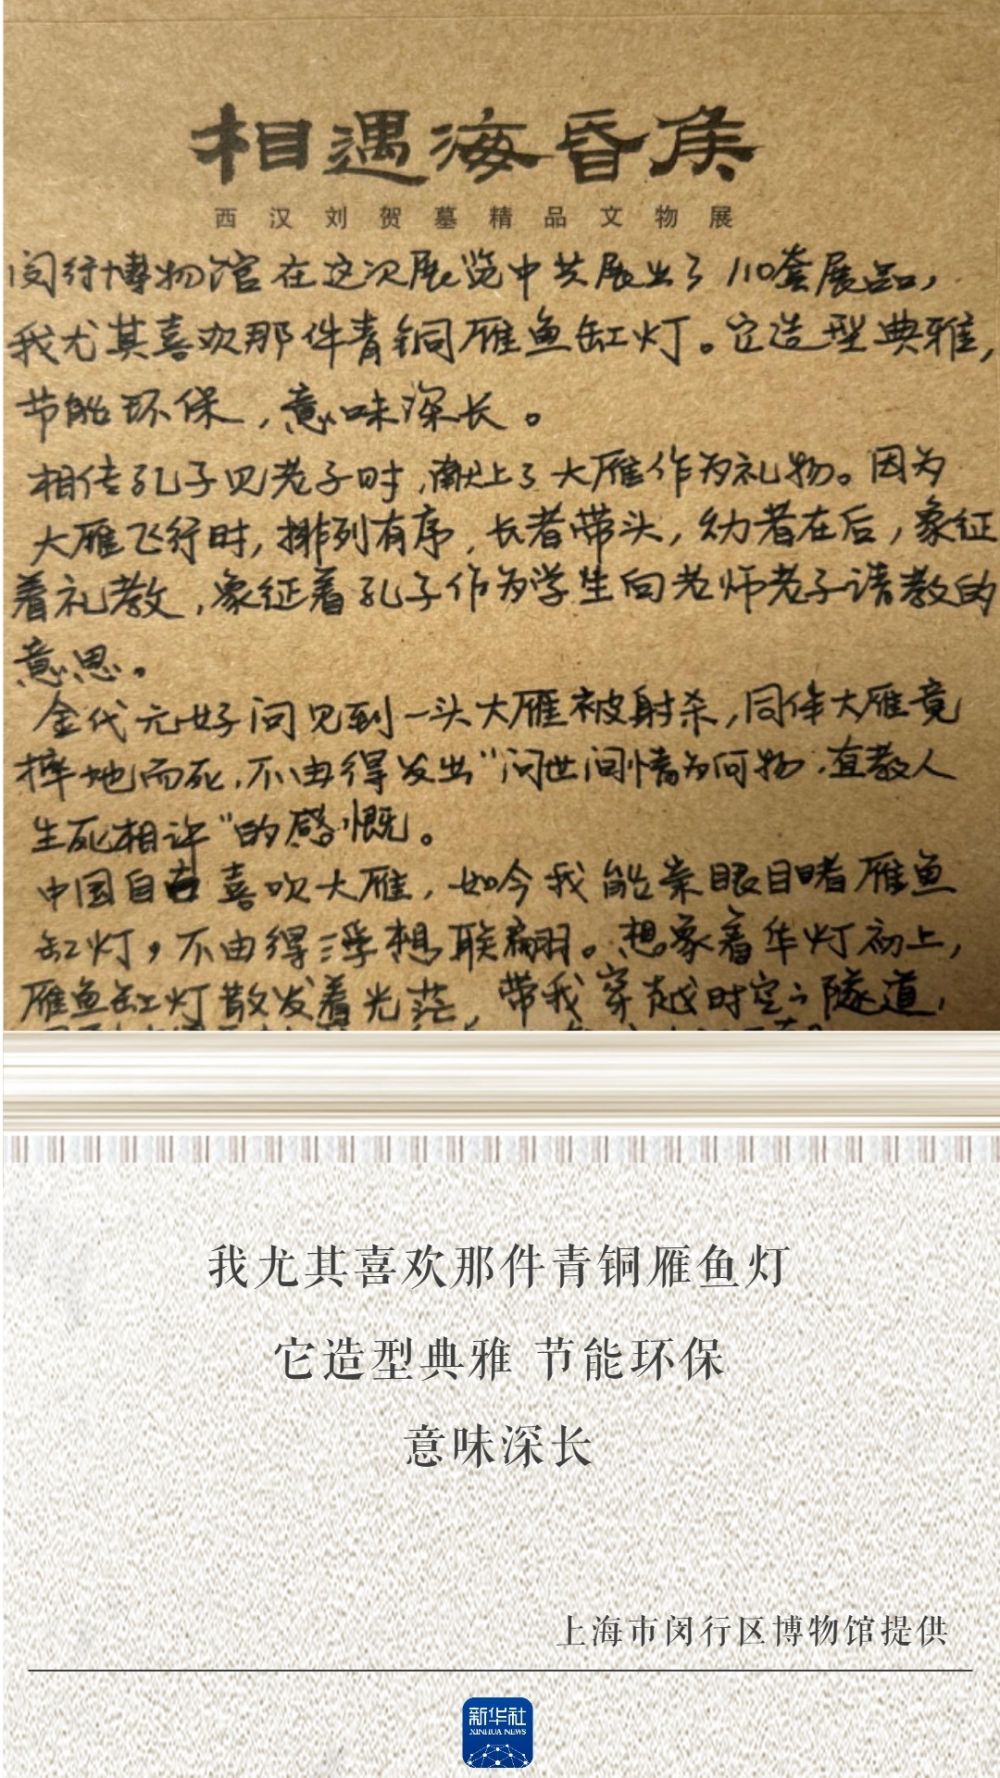 相遇海昏侯
西汉刘贺墓精品文物展
闵行博物馆在这次展览中共展出了110套展品，
我尤其喜欢那件青铜雁鱼缸灯。它造型典雅，
节能环保，意味深长。
相传孔子见老子时，献上了大雁作为礼物。因为
大雁飞行时，排列有序，长者带头，幼者在后，象征
着礼教，象征着孔子作为学生向老师老子请教的
意思。
金代元好问见到一头大雁被射杀，同伴大雁竟
摔地而死，不由得发出“问世间情为何物，直教人
生死相许”的感慨。
中国自古喜欢大雁，如今我能亲眼目睹雁鱼
缸灯，不由得浮想联翩。想象着华灯初上，
雁鱼缸灯散发着光芒，带我穿越时空之隧道，
我尤其喜欢那件青铜雁鱼灯
它造型典雅 节能环保
意味深长
上海市闵行区博物馆提供
新华社
XINHUA NEWS